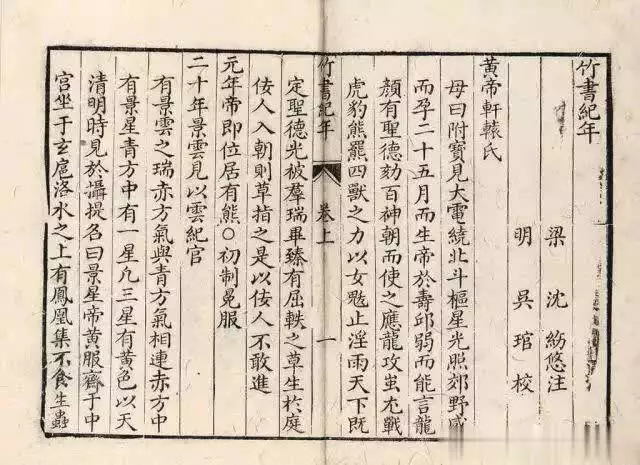 竹書紀年
梁 沈約悠注
明 吳琯校
黃帝軒轅氏
母曰附寶見大電繞北斗樞星光照郊野感
而孕二十五月而生帝於壽邱弱而能言龍
顏有聖德劾百神朝而使之應龍攻蚩尤戰
虎豹熊羆四獸之力以女魃止淫雨天下既
竹書紀年 卷上 一
定聖德光被羣瑞畢臻有屈軼之草生於庭
佞人入朝則草指之是以佞人不敢進
元年帝即位居有熊○初制冕服
二十年景雲見以雲紀官
有景雲之瑞赤方氣與青方氣相連赤方中
有景星青方中有一星凡三星有黃色以天
清明時見於攝提名曰景星帝黃服齋于中
宮坐于玄扈洛水之上有鳳凰集不食生蟲